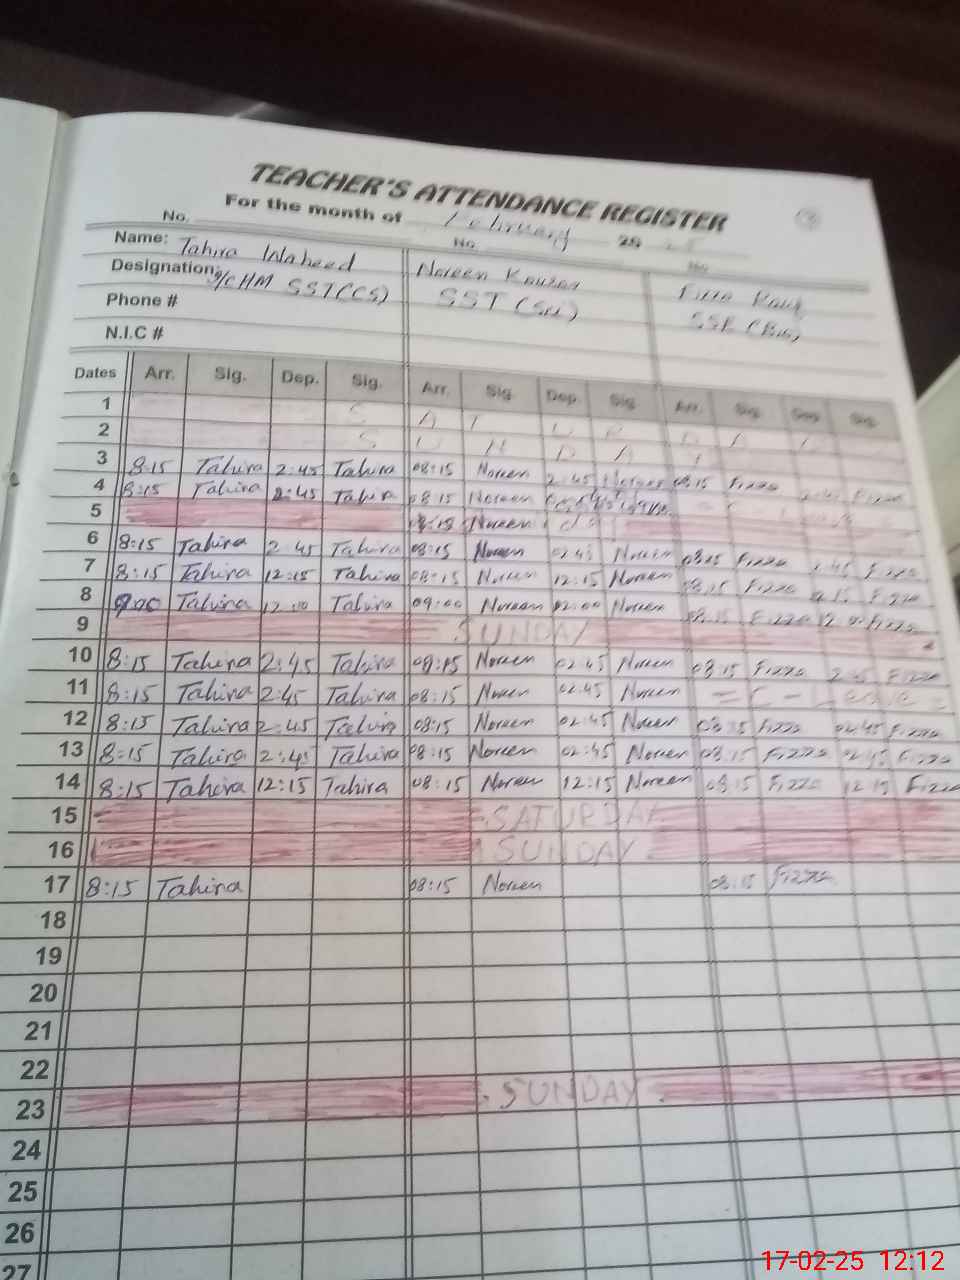 TEACHER'S ATTENDANCE REGISTER
For the month of February 20 25
No. No. No.
Name: Tahira Waheed Noreen Kousar Fizza
Designation: I/C HM SST(CS) SST (Sci)
Phone #
N.I.C #
Dates Arr. Sig. Dep. Sig. Arr. Sig. Dep. Sig. Arr. Sig. Dep. Sig.
1 S A T U R D A Y
2 S U N D A Y
3 8:15 Tahira 2:45 Tahira 08:15 Noreen 2:45 Noreen 08:15 Fizza 2:45 Fizza
4 8:15 Tahira 2:45 Tahira 08:15 Noreen
5 08:15 Noreen
6 8:15 Tahira 2:45 Tahira 08:15 Noreen 02:45 Noreen 08:15 Fizza 2:45 Fizza
7 8:15 Tahira 12:15 Tahira 08:15 Noreen 12:15 Noreen 08:15 Fizza Fizza
8 9:00 Tahira Tahira 09:00 Noreen 02:00 Noreen 08:15 Fizza Fizza
9 SUNDAY
10 8:15 Tahira 2:45 Tahira 08:15 Noreen 02:45 Noreen 08:15 Fizza 2:45 Fizza
11 8:15 Tahira 2:45 Tahira 08:15 Noreen 02:45 Noreen = C - Leave =
12 8:15 Tahira 2:45 Tahira 08:15 Noreen 02:45 Noreen 08:15 Fizza 02:45 Fizza
13 8:15 Tahira 2:45 Tahira 08:15 Noreen 02:45 Noreen 08:15 Fizza 02:45 Fizza
14 8:15 Tahira 12:15 Tahira 08:15 Noreen 12:15 Noreen 08:15 Fizza 12:15 Fizza
15 SATURDAY
16 SUNDAY
17 8:15 Tahira 08:15 Noreen 08:15 Fizza
18
19
20
21
22
23 SUNDAY
24
25
26
27
17-02-25 12:12